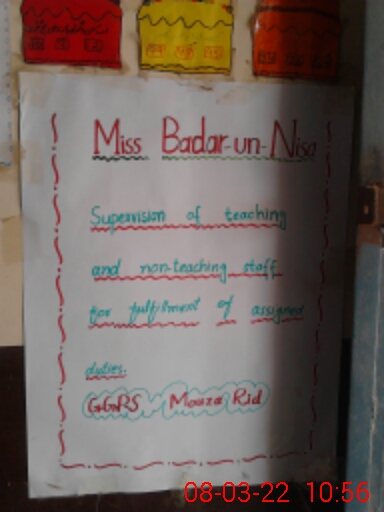 Miss Badar-un-Nisa
Supervision of teaching
and non-teaching staff
for fulfilment of assigned
duties.
GGRS Mouza Rid
08-03-22 10:56